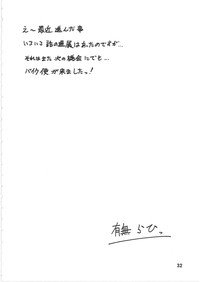 え〜最近進んだ事
いつコに話の進展はあったのですが…
それはまた次の機会にでも…
バイク便が来ましたっ!
有無らひ
32